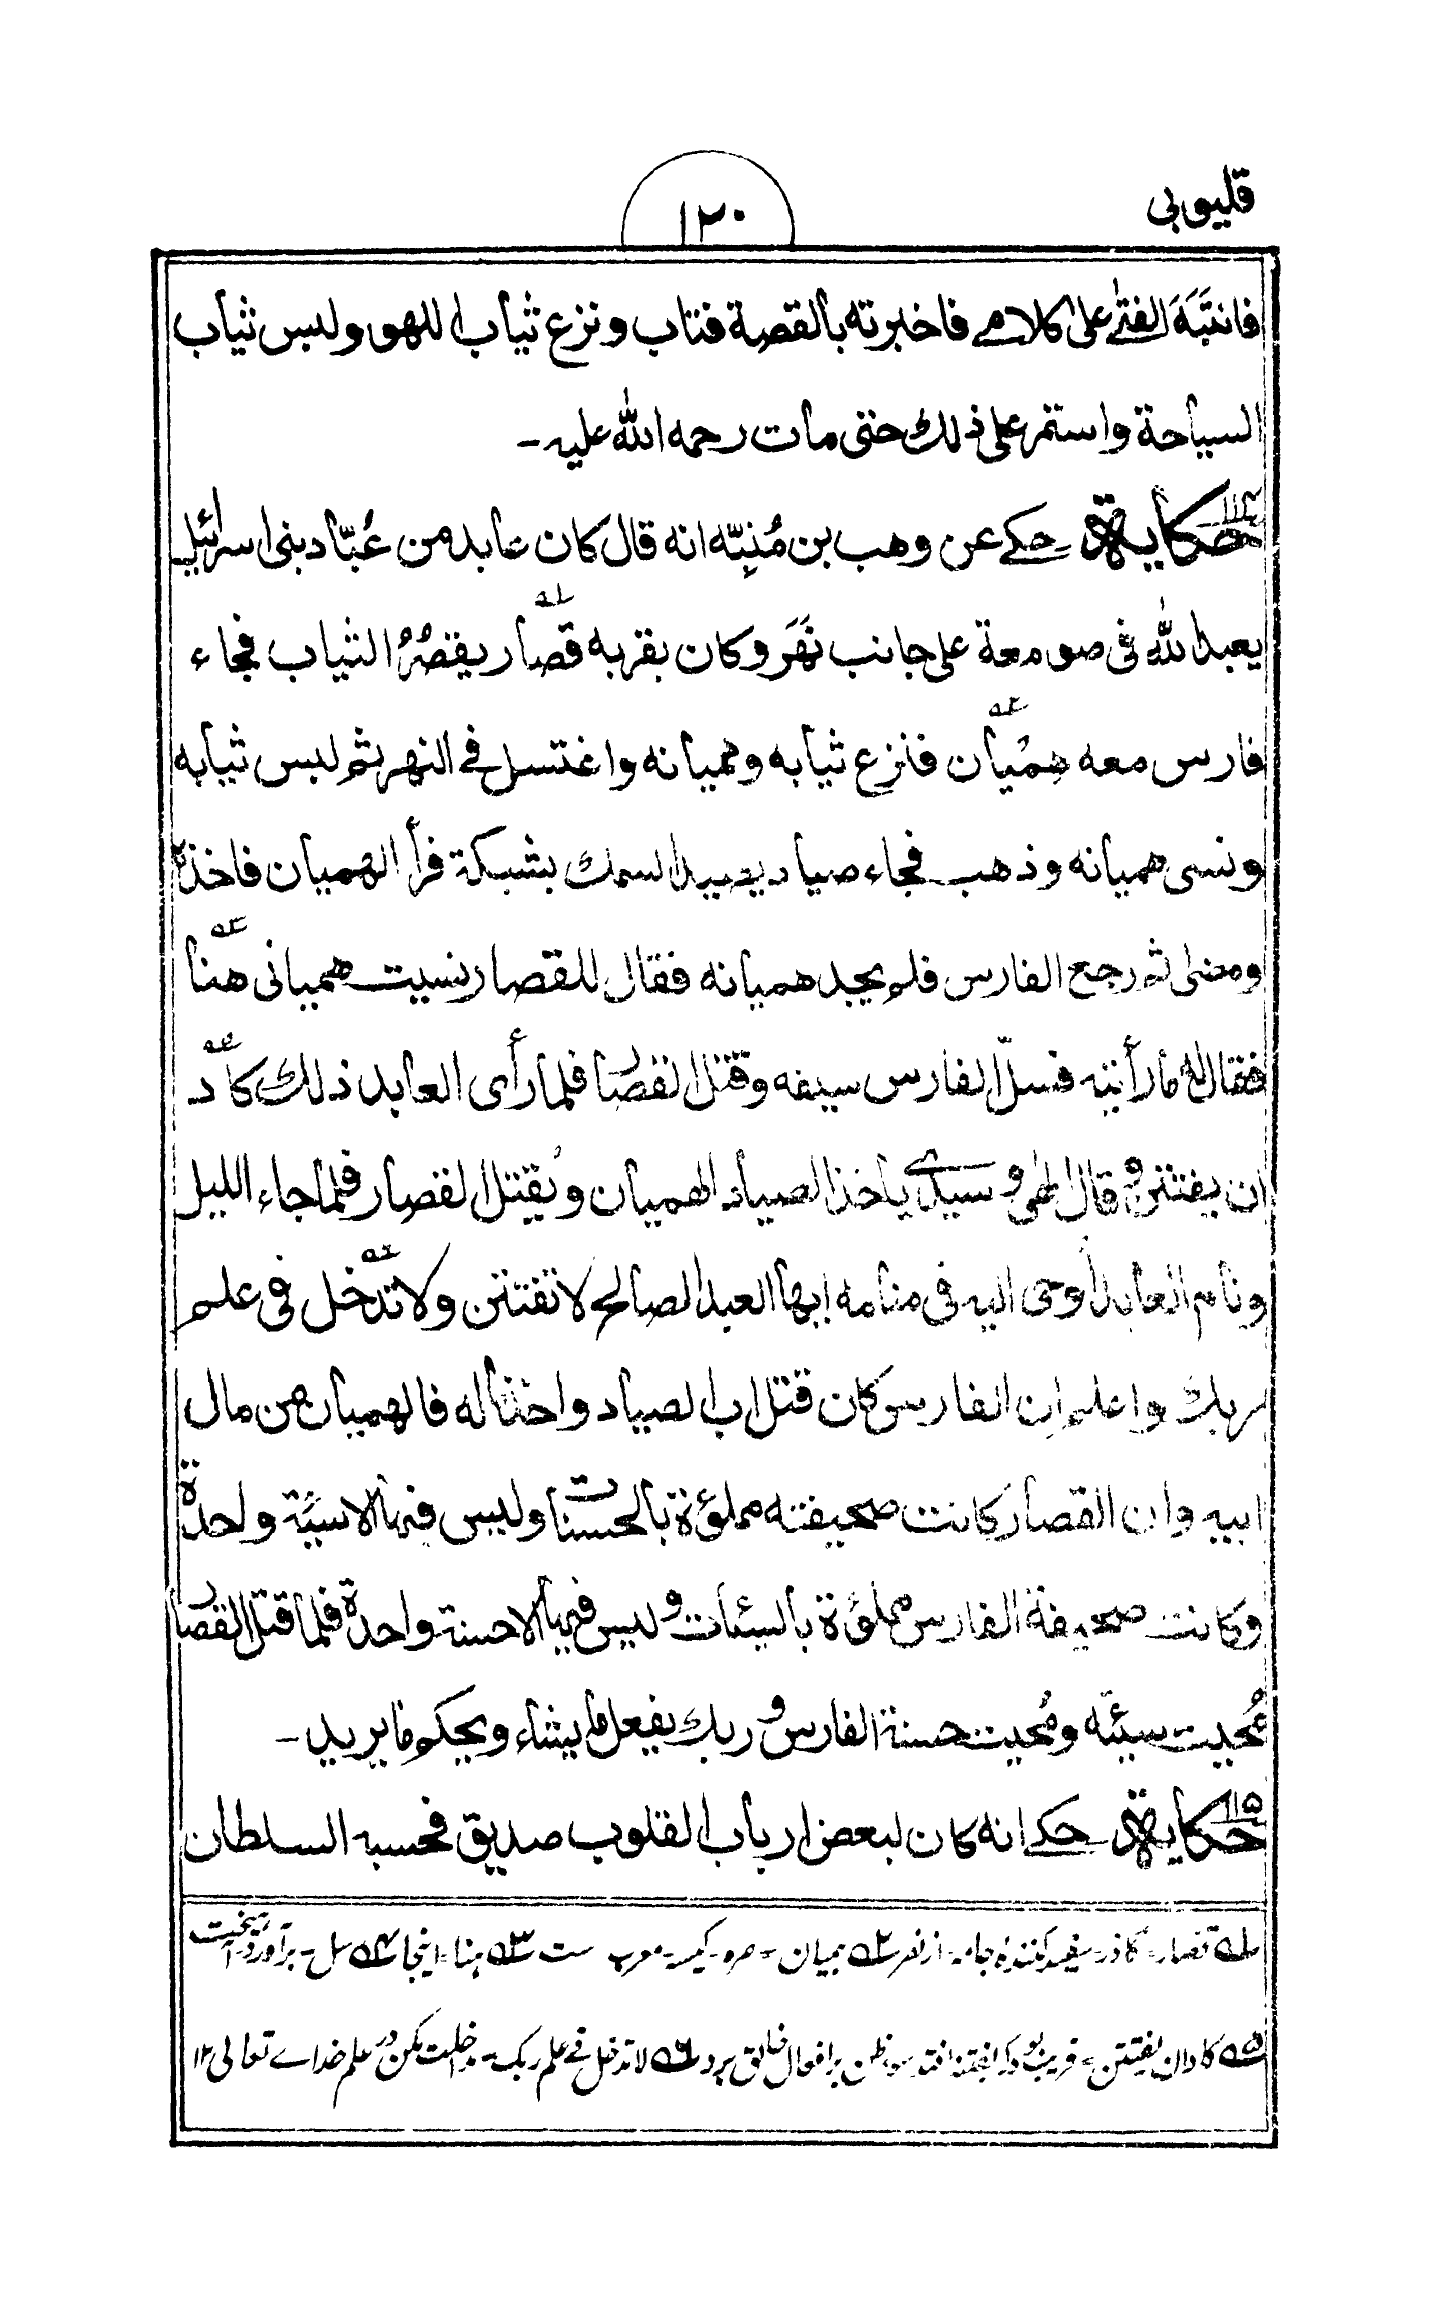 قليوبى
١٢٠
فانتبَهَ الفتى على كلامى فاخبرته بالقصة فتاب ونزع ثياب اللهو ولبس ثياب
السياحة واستمر على ذلك حتى مات رحمه الله عليه ـ
١١٤ حكاية حكى عن وهب بن مُنبِّه انه قال كان عابد من عُبّاد بنى اسرائيل
يعبد الله فى صومعة على جانب نَهَر وكان بقربه قصّار يقصُرُ الثياب فجاء
فارس معه هِمْيان فنزع ثيابه وهميانه واغتسل فى النهر ثم لبس ثيابه
ونسى هميانه وذهب فجاء صياد يصيد السمك بشبكة فرأ الهميان فاخذه
ومضى ثم رجع الفارس فلم يجد هميانه فقال للقصار نسيت هميانى هنا
فقال له ما رأيته فسلّ الفارس سيفه وقتل القصار فلما رأى العابد ذلك كاد
ان يفتتن وقال الهى وسيدى ياخذ الصياد الهميان ويُقتل القصار فلما جاء الليل
ونام العابد أوحى اليه فى منامه ايها العبد الصالح لا تفتتن ولا تدخل فى علم
ربك واعلم ان الفارس كان قتل اب الصياد واخذ ماله فالهميان من مال
ابيه وان القصار كانت صحيفته مملؤة بالحسنات وليس فيها الا سيئة واحدة
وكانت صحيفة الفارس مملؤة بالسيئات وليس فيها الا حسنة واحدة فلما قتل القصار
مُحيت سيئته ومُحيت حسنة الفارس وربك يفعل ما يشاء ويحكم ما يريد ـ
١١٥ حكاية حكى انه كان لبعض ارباب القلوب صديق فحبسه السلطان
١ه قصار ـ گاذر ـ سفيد كنندۀ جامه ـ از نصر ٢ه هميان ـ صره ـ كيسه ـ معرب ست ٣ه هنا ـ اينجا ٤ه سل ـ برآورد ـ آهيخت
٥ه كاد ان يفتتن ـ قريب بود كه بفتنه افتد سوء ظن بر افعال خالق برد ٦ه لا تدخل فى علم ربك ـ مداخلت مكن در علم خداے تعالى ١٢